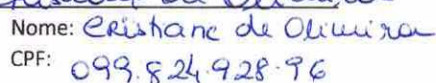 Nome: Cristiane de Oliveira
CPF: 099.824.928-96